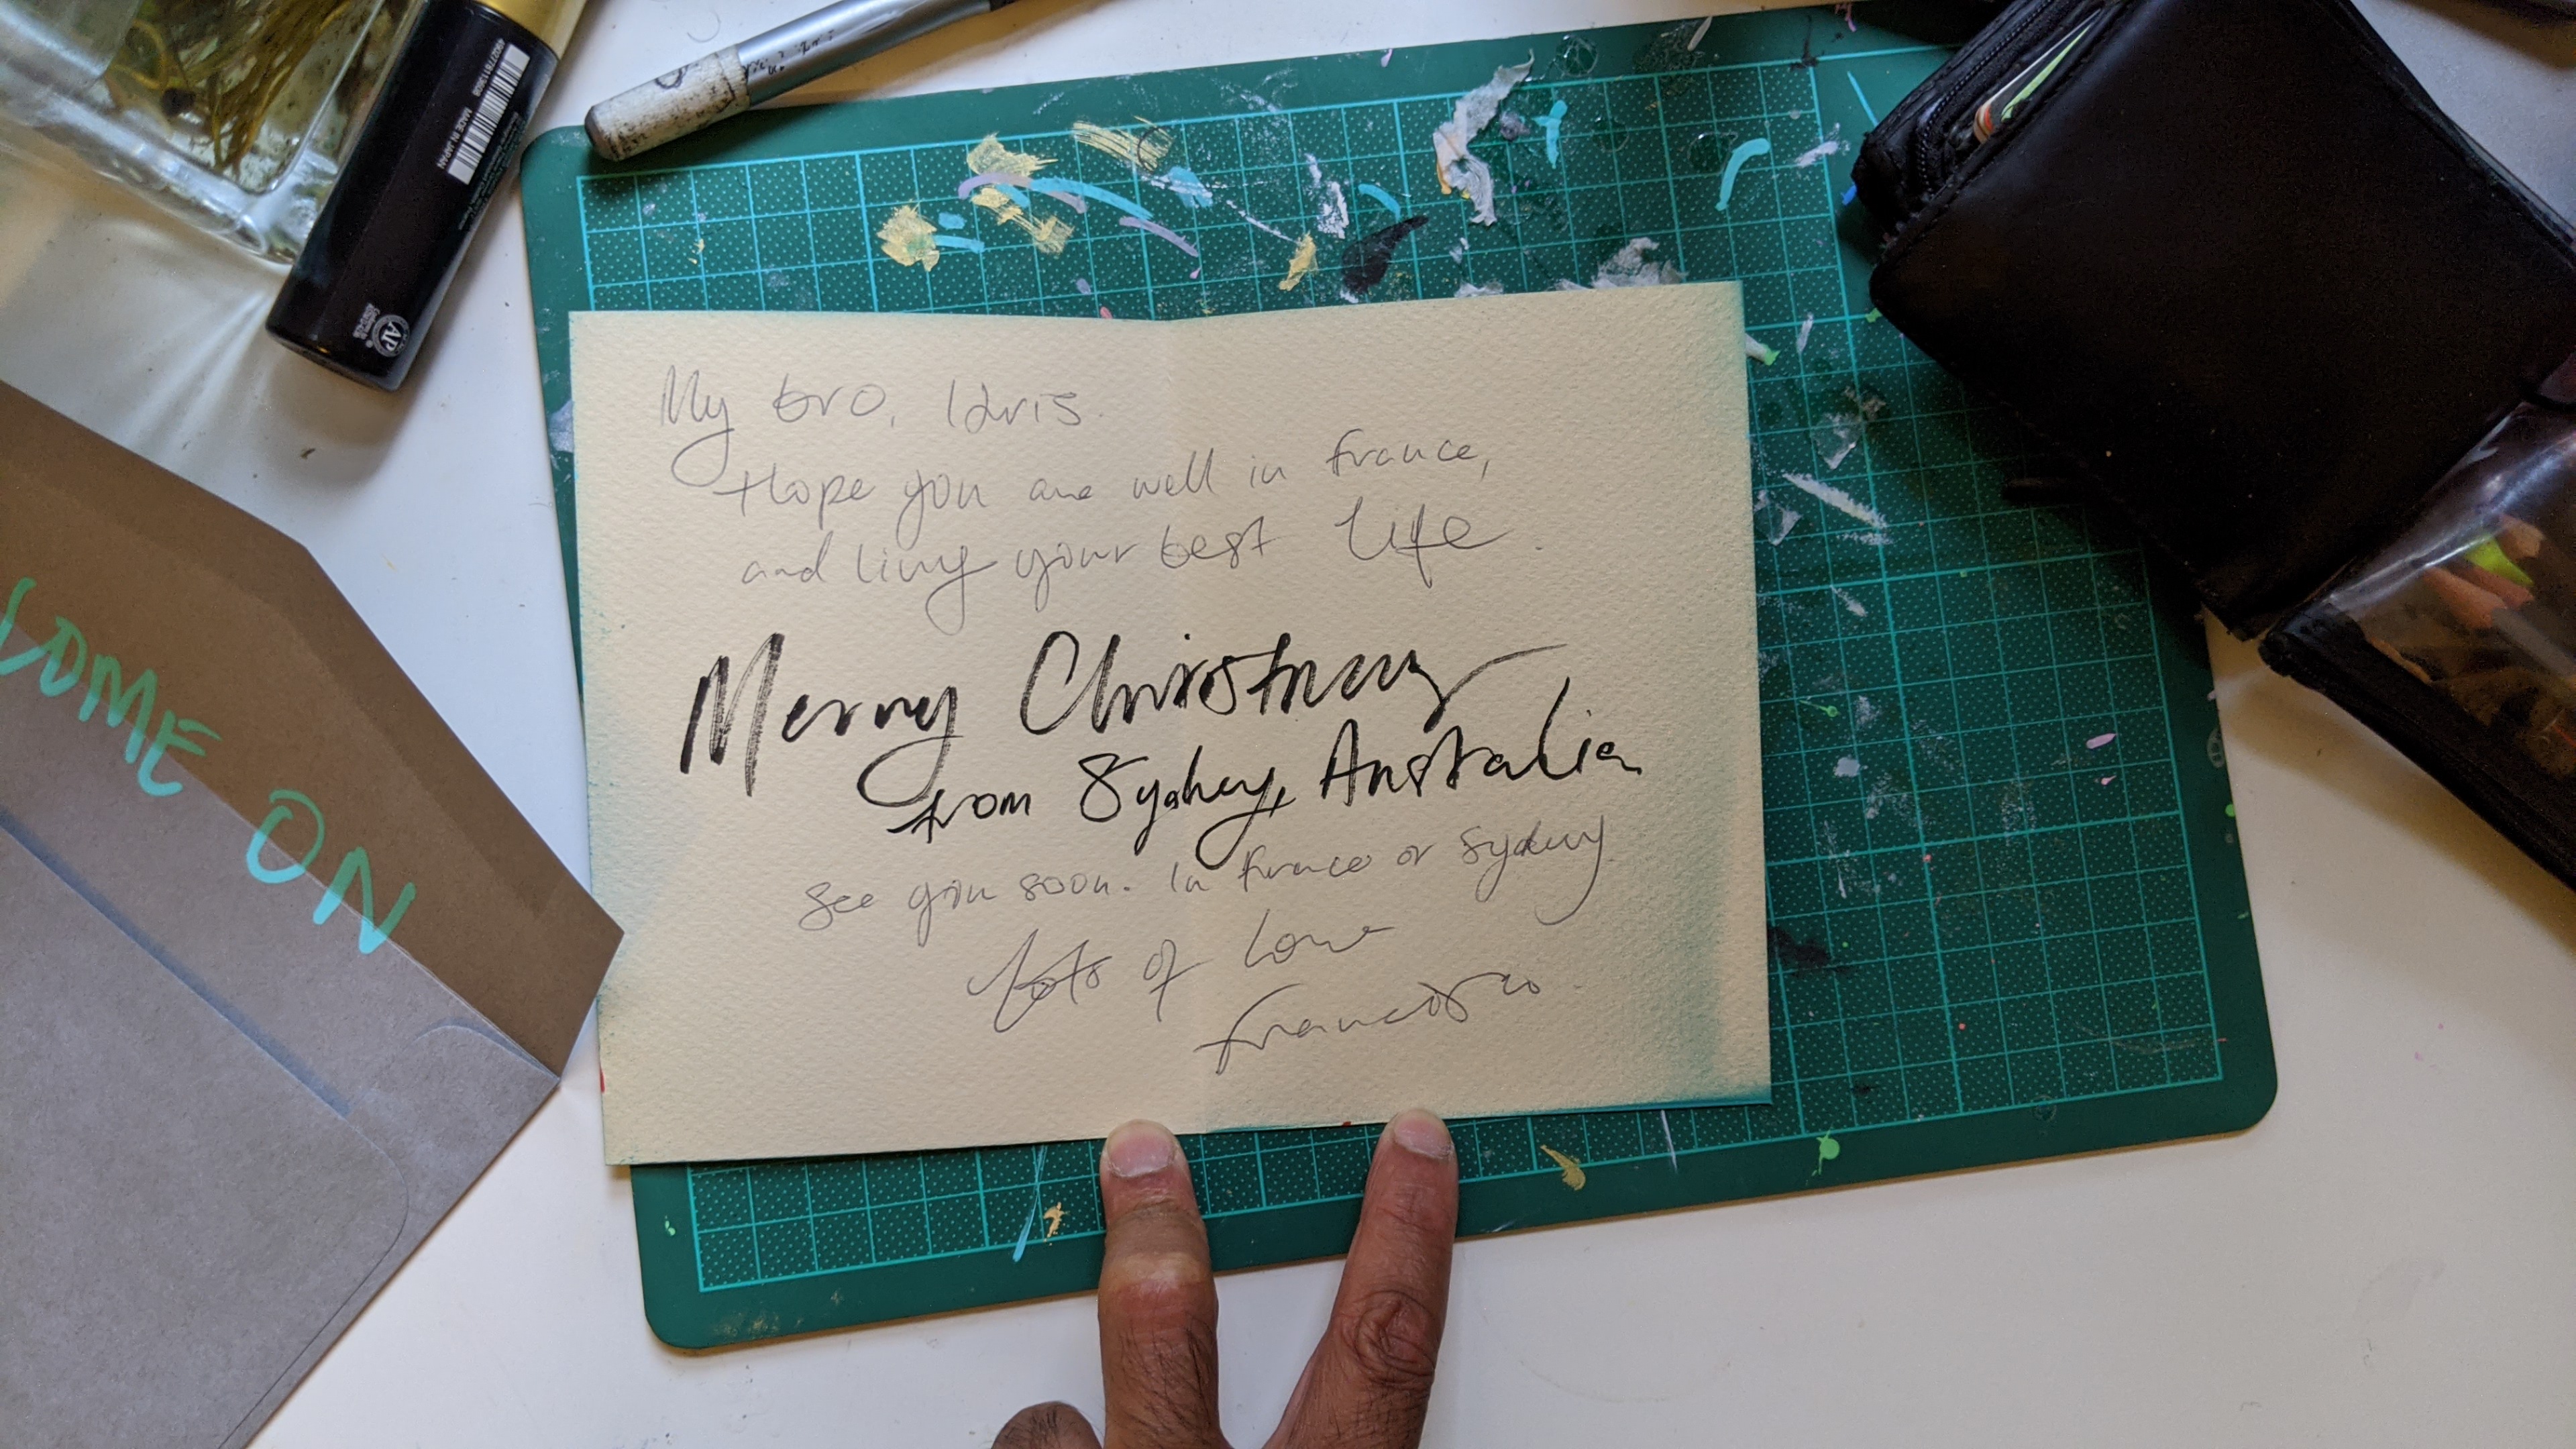 My bro, Idris.
Hope you are well in France,
and living your best life.
Merry Christmas
from Sydney, Australia
See you soon. In France or Sydney
Lots of Love
Francisco.
COME ON
MADE IN JAPAN
AP